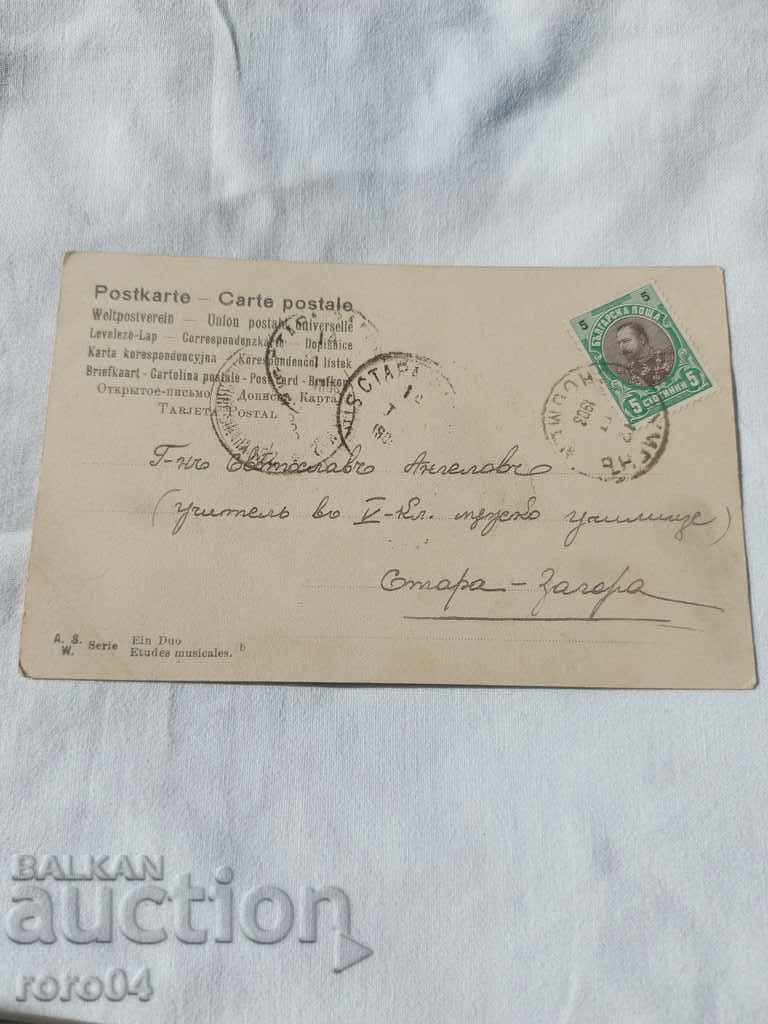 Postkarte – Carte postale
Weltpostverein – Union postale universelle
Levelezö-Lap – Correspondenzkarte – Dopisnice
Karta korespondencyjna – Korespondenčni listek
Briefkaart - Cartolina postale - Post card - Brefkort
Открытое-письмо – Дописна Карта
Tarjeta Postal
5
5
БЪЛГАРСКА ПОЩА
5 СТОТИНКИ 5
1903
СТАРА
Г-нъ Светославъ Ангеловъ
(учитель въ V-кл. мѫжко училище)
Стара-Загора
A. S. W. Serie
Ein Duo
Etudes musicales. b
BALKAN
auction
roro04